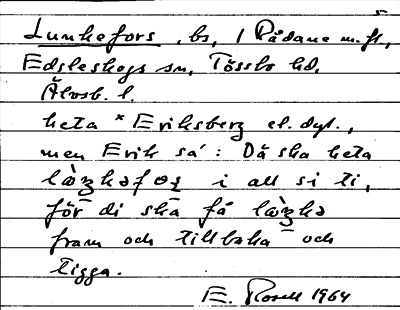 Lunkefors, bs, / Rådane m.fl.,
Edsleskogs sn, Tössbo hd,
Älvsb. l.
heta * Eriksberg el. dyl.,
men Erik sa: Då ska heta
i all si ti,
för di ska få
fram och tillbaka och
tigga.
E. Rosell 1964